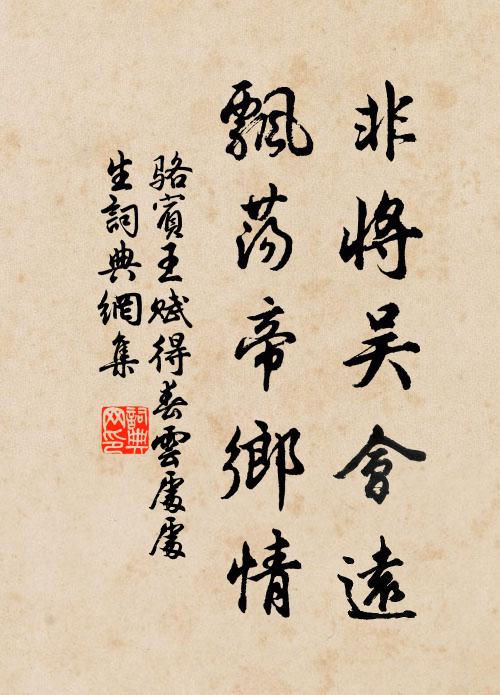 非將吳會遠
飄蕩帝鄉情
駱賓王賦得春雲處處
生詞典網集
詞典
网印